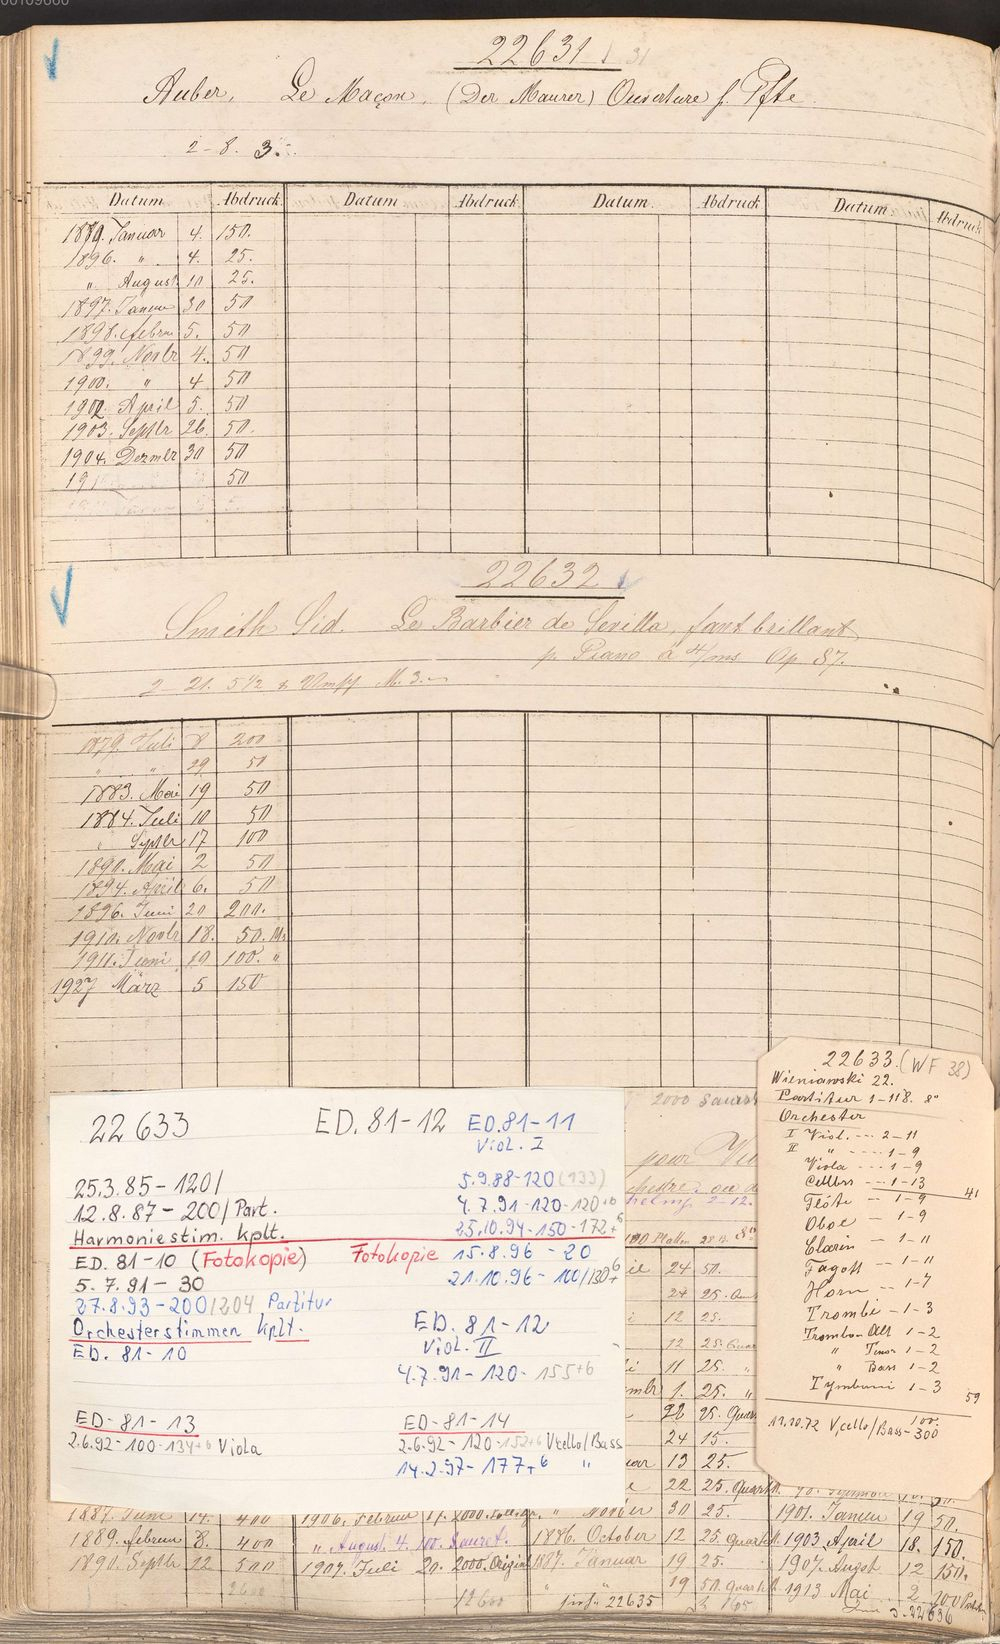 22631 31
Auber, Le Maçon, (Der Maurer) Ouverture f. Pfte
2-8. 3.
Datum Abdruck Datum Abdruck Datum Abdruck Datum Abdruck
1879. Januar 4. 150.
1896. " 4. 25.
" August 10 25.
1897. Januar 30 50
1898. Febru 5. 50
1899. Novbr 4. 50
1900. " 4 50
1902. April 5. 50
1903. Septbr 26. 50.
1904. Dezmbr 30 50
191 50
22632
Smith Sid. Le Barbier de Sevilla, fant brillant
p. Piano à 4/ms Op. 87.
2-21. 5½ & M. 3.
1879. Juli 8 200
" " 29 50
1883. Mai 19 50
1884. Juli 10 50
" Septbr 17 100
1890. Mai 2 50
1894. April 6. 50
1896. Juni 20 200.
1910. Novbr 18. 50.
1911. Juni 19 100. "
1927 März 5 150
22633 ED. 81-12 ED. 81-11
Viol. I
25.3.85-120/ 5.9.88-120 (133)
12.8.87-200/Part. 4.7.91-120-120+6
Harmoniestim. kplt. 25.10.94-150-172+6
ED. 81-10 (Fotokopie) Fotokopie 15.8.96-20
5.7.91-30 21.10.96-100/130+6
27.8.93-200/204 Partitur
Orchesterstimmen kplt. ED. 81-12
ED. 81-10 Viol. II
4.7.91-120-155+6
ED-81-13 ED-81-14
2.6.92-100-134+6 Viola 2.6.92-120-152+6 Vcello/Bass
14.2.97-177+6 "
22633. (WF 38)
Wieniawski 22.
Partitur 1-118. 8°
Orchester
I Viol. --- 2-11
II " ---- 1-9
Viola --- 1-9
Cellbss -- 1-13
41
Flöte -- 1-9
Oboe -- 1-9
Clarin -- 1-11
Fagott -- 1-11
Horn -- 1-7
Trombe -- 1-3
Trombon Alt 1-2
" Tenor 1-2
" Bass 1-2
Tympani 1-3
59
100.
11.10.72 Vcello/Bass-300
2000 Sauret
pour
2-12.
24 50.
24 25.
12 25.
12 25. Quar
11 25. "
1. 25. "
22 25. Quar
24 15.
13 25.
22 25. Quartt.
1887. Juni 14. 400 1906. Februar 17. 2000. " Novber 30 25. 1901. Januar 19 50.
1889. Februar 8. 400 " August 4. 100. Sauret. 1886. October 12 25. Quartt 1903 April 18. 150.
1890. Septbr 22 500 1907. Juli 20. 2000. Original 1887. Januar 19 25. 1907. Augst 12 150.
2600 " 19 50. Quartt 1913 Mai 2 200
12600 22635 22636